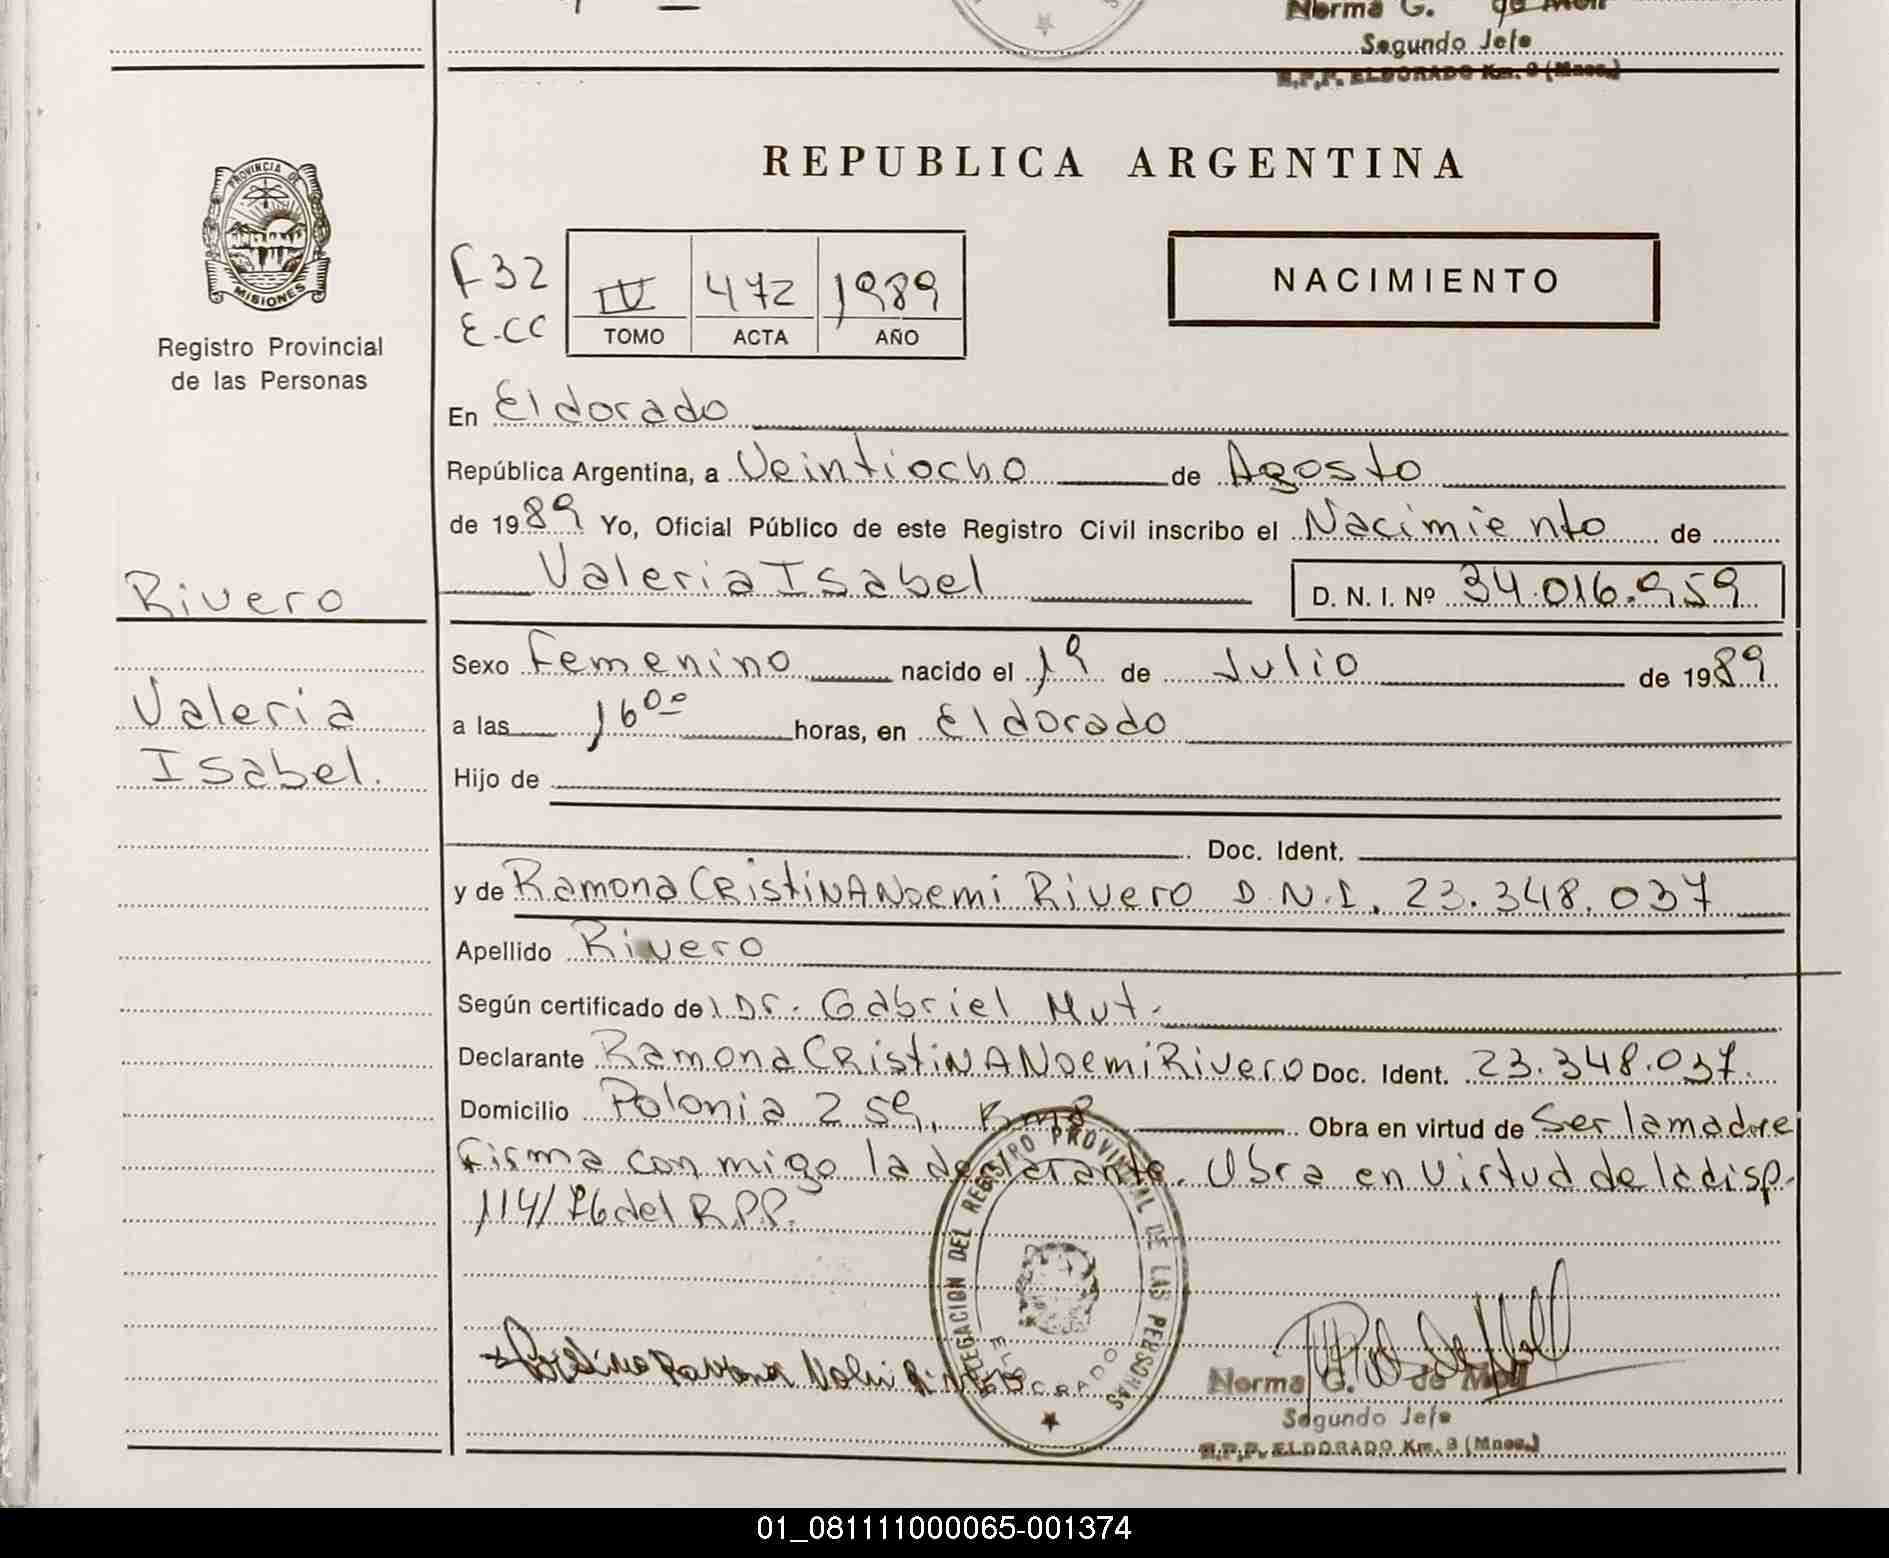 Norma G. de Moll
Segundo Jefe
R.P.P. ELDORADO Km. 9 (Mnes.)
PROVINCIA DE
MISIONES
Registro Provincial
de las Personas
REPUBLICA ARGENTINA
F32
E.CC
IV 472 1989
TOMO ACTA AÑO
NACIMIENTO
En Eldorado
República Argentina, a Veintiocho de Agosto
de 1989 Yo, Oficial Público de este Registro Civil inscribo el Nacimiento de
Valeria Isabel D. N. I. Nº 34.016.959
Rivero
Valeria
Isabel.
Sexo Femenino nacido el 1º de Julio de 1989
a las 16 00 horas, en Eldorado
Hijo de
Doc. Ident.
y de Ramona CRistiNA Noemi Rivero D.N.I. 23.348.037
Apellido Rivero
Según certificado del Dr. Gabriel Mut.
Declarante Ramona CRistiNA Noemi Rivero Doc. Ident. 23.348.037.
Domicilio Polonia 259, Km8 Obra en virtud de Ser la madre
Firma conmigo la declarante. Obra en Virtud de la disp.
114/76 del R.P.P.
DELEGACION DEL REGISTRO PROVINCIAL DE LAS PERSONAS
ELDORADO
Norma G. de Moll
Segundo Jefe
R.P.P. ELDORADO Km. 9 (Mnes.)
01_081111000065-001374